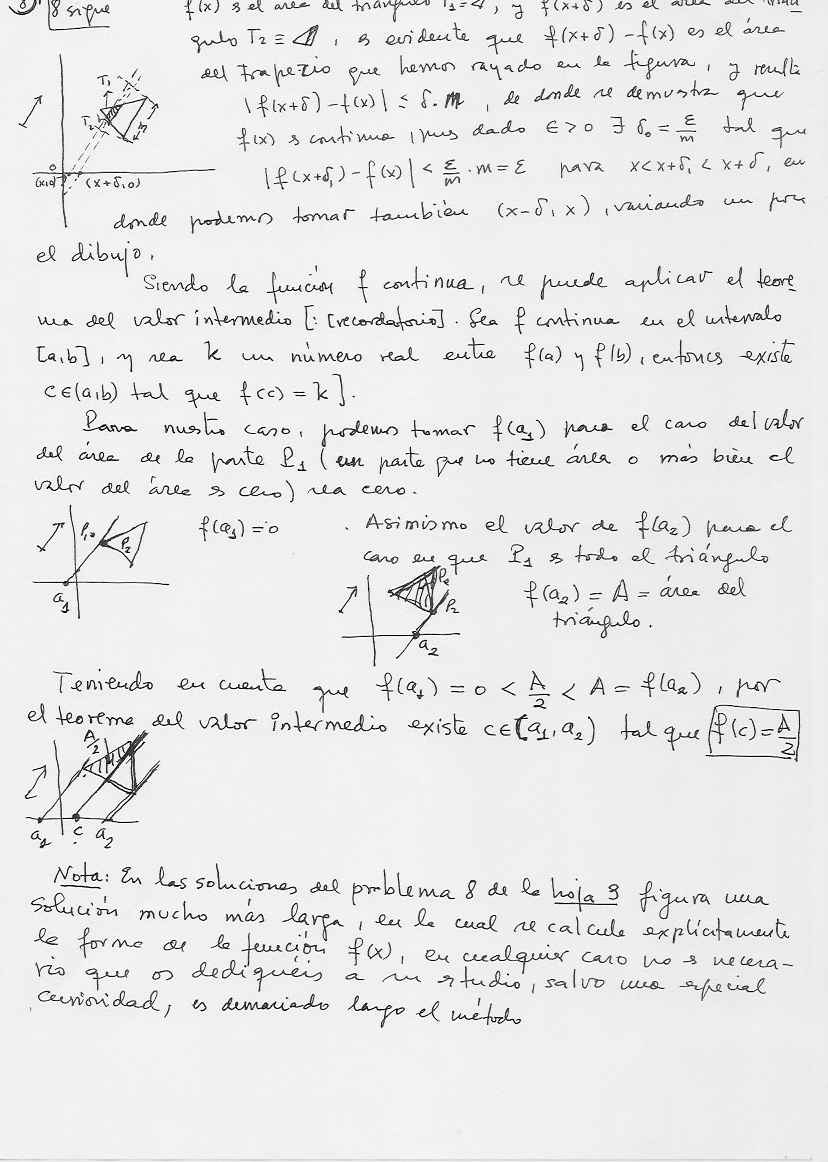 8) 8 sigue f(x) s el área del triángulo T₁ = , y f(x+δ) es el área del trián
gulo T₂ ≡ , s evidente que f(x+δ) - f(x) es el área
del trapezio que hemos rayado en la figura, y resulta
|f(x+δ) - f(x)| ≤ δ. m, de donde se demuestra que
f(x) s continua, pues dado ε > 0 ∃ δ₀ = ε/m tal que
|f(x+δ₁) - f(x)| < ε/m · m = ε para x < x+δ₁ < x+δ, en
donde podemos tomar también (x-δ, x), variando un poco
el dibujo.
T₁
T₂
m
0
(x,0) (x+δ,0)
Siendo la función f continua, se puede aplicar el teore
ma del valor intermedio [: [recordatorio]. Sea f continua en el intervalo
[a,b], y sea k un número real entre f(a) y f(b), entoncs existe
c∈(a,b) tal que f(c) = k].
Para nuestro caso, podemos tomar f(a₁) para el caso del valor
del área de la parte P₁ (una parte que no tiene área o más bien el
valor del área s cero) sea cero.
f(a₁) = 0 . Asimismo el valor de f(a₂) para el
caso en que P₁ s todo el triángulo
f(a₂) = A = área del
triángulo.
P₁
P₂
a₁
P₁
P₂
a₂
Teniendo en cuenta que f(a₁) = 0 < A/2 < A = f(a₂), por
el teorema del valor intermedio existe c∈(a₁, a₂) tal que f(c) = A/2
A/2
a₁ c a₂
Nota: En las soluciones del problema 8 de la hoja 3 figura una
solución mucho más larga, en la cual se calcula explícitamente
la forma de la función f(x), en cualquier caso no s necesa-
rio que os dediquéis a su estudio, salvo una especial
curiosidad, es demasiado largo el método